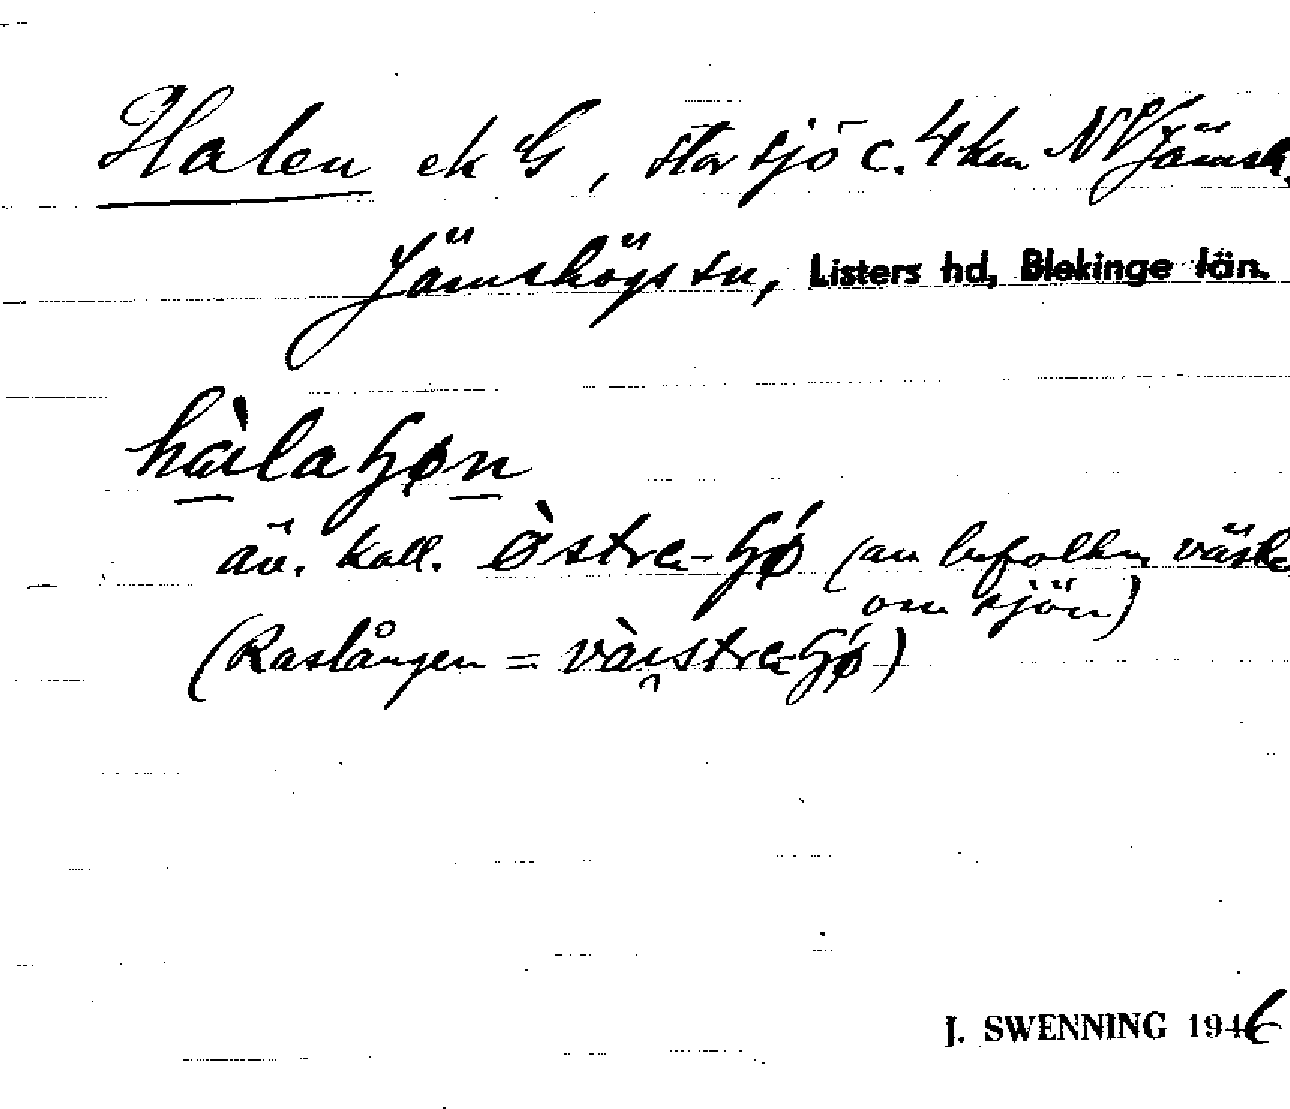 Halen ek G, stor sjö c. 4 km NV Jämsh.
Jämshögs sn, Listers hd, Blekinge län.
hàlaʃøn
äv. kall. östre-ʃø (av befolkn väster
om sjön)
(Raslången = vàstre-ʃø)
J. SWENNING 1946